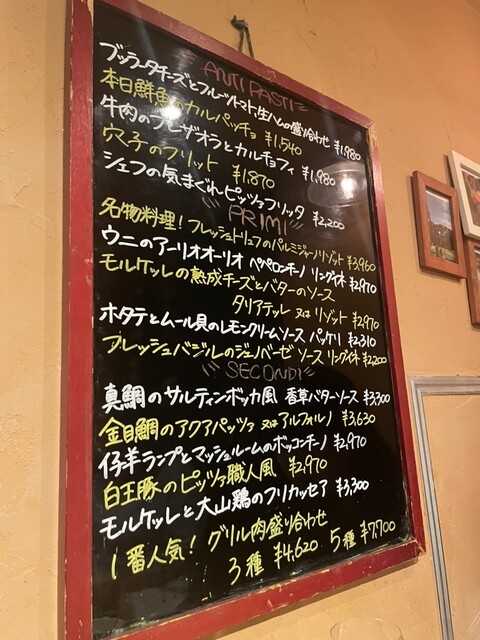 ANTIPASTI
ブッラータチーズとフルーツトマト生ハムの盛り合わせ ¥1,980
本日鮮魚のカルパッチョ ¥1,540
牛肉のブレザオラとカルチョフィ ¥1,980
穴子のフリット ¥1,870
シェフの気まぐれピッツァフリッタ ¥2,200
PRIMI
名物料理！フレッシュトリュフのパルミジャーノリゾット ¥2,960
ウニのアーリオオーリオ ペペロンチーノ リングイネ ¥2,970
モルケッレの熟成チーズとバターのソース
タリアテッレ 又は リゾット ¥2,970
ホタテとムール貝のレモンクリームソース パッケリ ¥2,310
フレッシュバジルのジェノベーゼソース リングイネ ¥2,200
SECONDI
真鯛のサルティンボッカ風 香草バターソース ¥3,300
金目鯛のアクアパッツァ 又は アルフォルノ ¥3,630
仔羊ランプとマッシュルームのボッコンチーノ ¥2,970
白王豚のピッツァ職人風 ¥2,970
モルケッレと大山鶏のフリカッセア ¥3,300
1番人気！グリル肉盛り合わせ
3種 ¥4,620 5種 ¥7,700